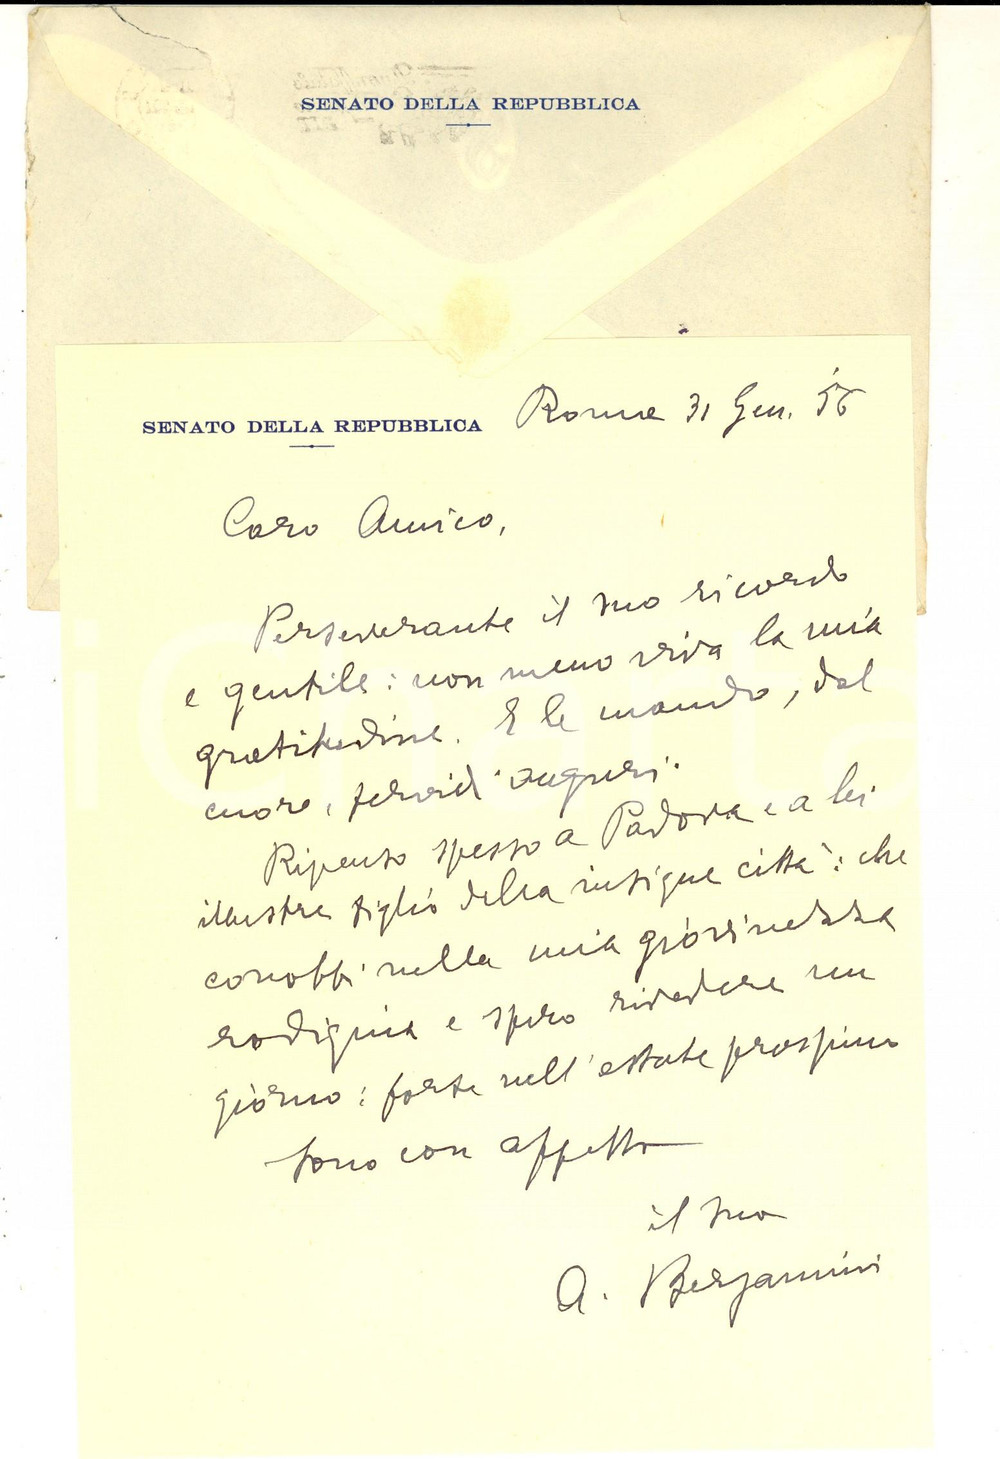 SENATO DELLA REPUBBLICA
SENATO DELLA REPUBBLICA
Roma 31 Gen. '56
Caro Amico,
Perseverante il suo ricordo
e gentile: non meno viva la mia
gratitudine. E le mando, dal
cuore, fervidi auguri.
Ripenso spesso a Padova e a lei
illustre figlio della insigne città: che
conobbi nella mia giovinezza
rodigina e spero rivedere un
giorno: forse nell'estate prossima
Sono con affetto
il suo
A. Bergamini